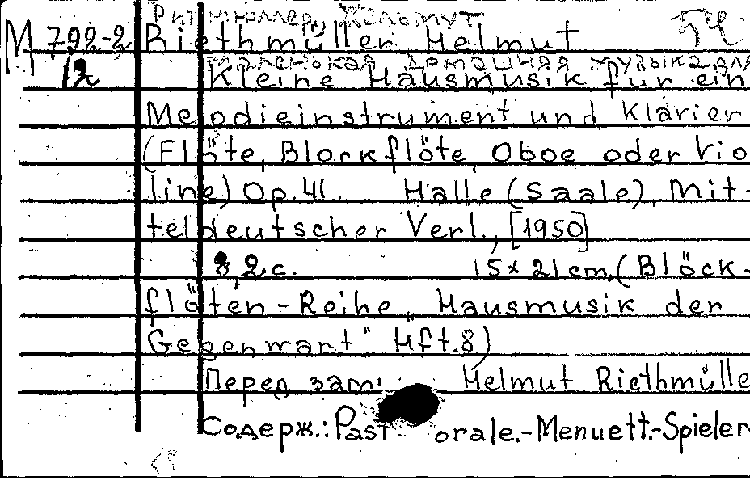 Ритмюллер, Хельмут
М 792-2 Riethmüller Helmut
12 Маленькая домашняя музыка для
Kleine Hausmusik für ein
Melodieinstrument und Klavier
(Flöte, Blockflöte, Oboe oder Vio
line) Op.41. Halle (Saale), Mit-
teldeutscher Verl., [1950]
8,2 с. 15x21cm. (Blöck-
flöten-Reihe „Hausmusik der
Gegenwart" Hft.8)
Перед заг: Helmut Riethmülle
Содерж.: Past orale.-Menuett.-Spieler